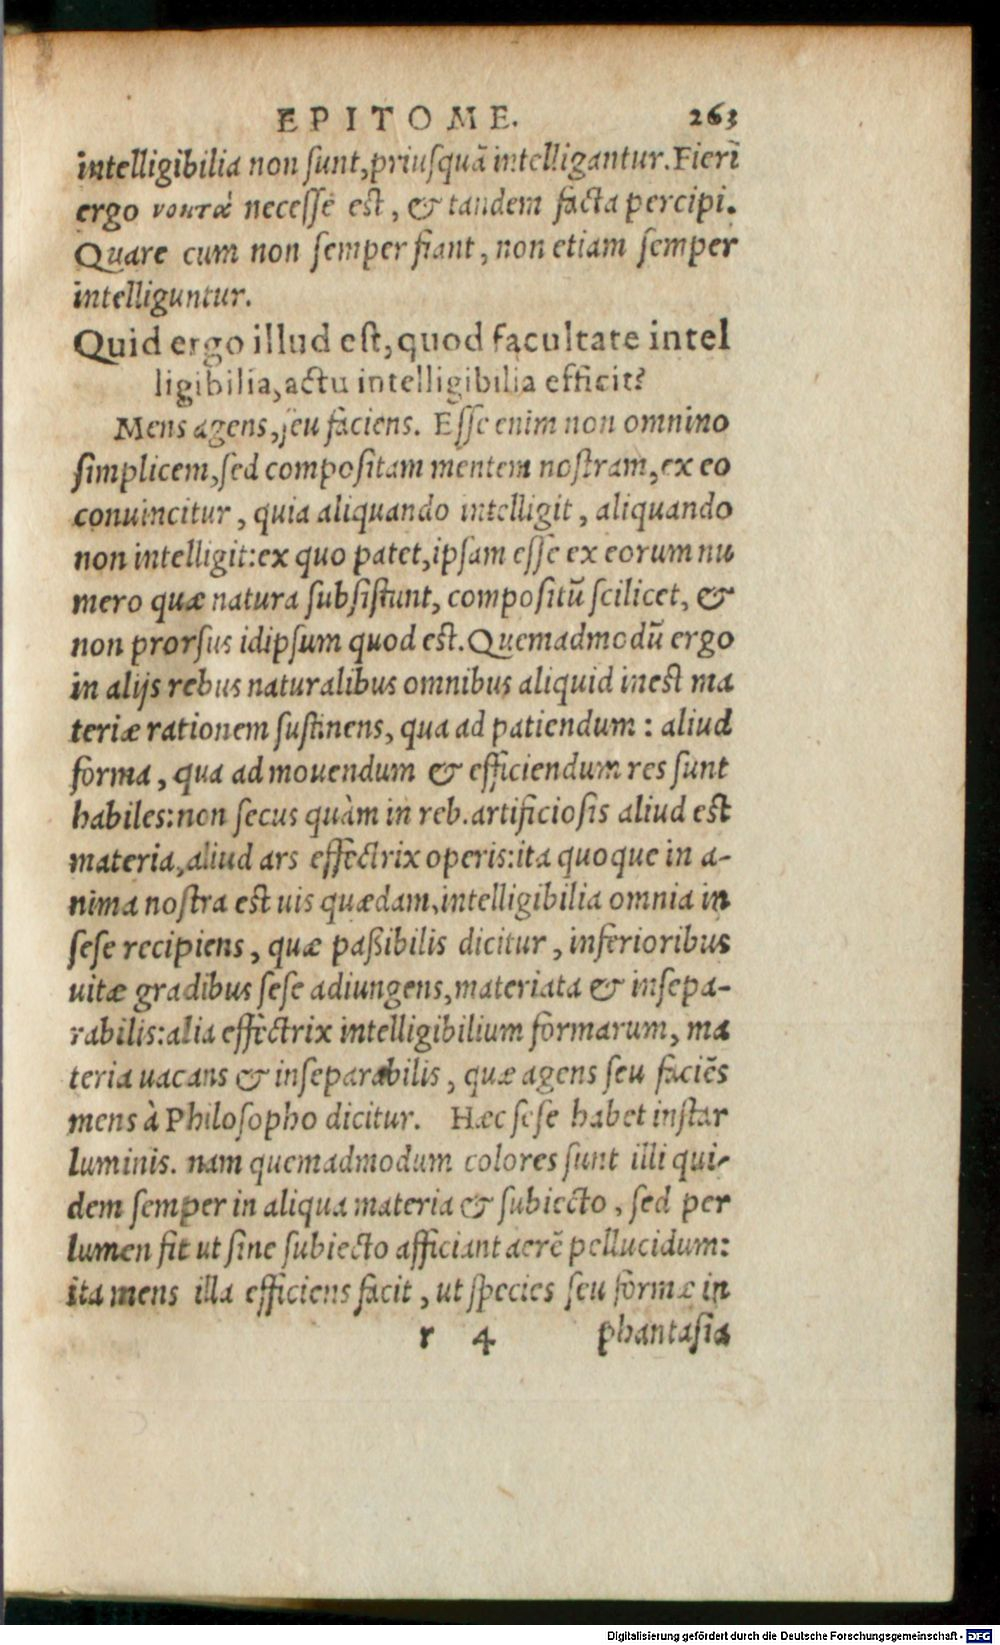 EPITOME. 263
intelligibilia non ſunt, priuſquā intelligantur. Fieri
ergo νοητὰ neceſſe eſt, & tandem facta percipi.
Quare cum non ſemper fiant, non etiam ſemper
intelliguntur.
Quid ergo illud eſt, quod facultate intel
ligibilia, actu intelligibilia efficit?
Mens agens, ſeu faciens. Eſſe enim non omnino
ſimplicem, ſed compoſitam mentem noſtram, ex eo
conuincitur, quia aliquando intelligit, aliquando
non intelligit: ex quo patet, ipſam eſſe ex eorum nu
mero quæ natura ſubſiſtunt, compoſitū ſcilicet, &
non prorſus idipſum quod eſt. Quemadmodū ergo
in alijs rebus naturalibus omnibus aliquid ineſt ma
teriæ rationem ſuſtinens, qua ad patiendum: aliud
forma, qua ad mouendum & efficiendum res ſunt
habiles: non ſecus quàm in reb. artificioſis aliud eſt
materia, aliud ars effectrix operis: ita quoque in a-
nima noſtra eſt uis quædam, intelligibilia omnia in
ſeſe recipiens, quæ paßibilis dicitur, inferioribus
uitæ gradibus ſeſe adiungens, materiata & inſepa-
rabilis: alia effectrix intelligibilium formarum, ma
teria uacans & inſeparabilis, quæ agens ſeu faciēs
mens à Philoſopho dicitur. Hæc ſeſe habet inſtar
luminis. nam quemadmodum colores ſunt illi qui-
dem ſemper in aliqua materia & ſubiecto, ſed per
lumen fit ut ſine ſubiecto afficiant aerē pellucidum:
ita mens illa efficiens facit, ut ſpecies ſeu formæ in
r 4 phantaſia
Digitalisierung gefördert durch die Deutsche Forschungsgemeinschaft - DFG